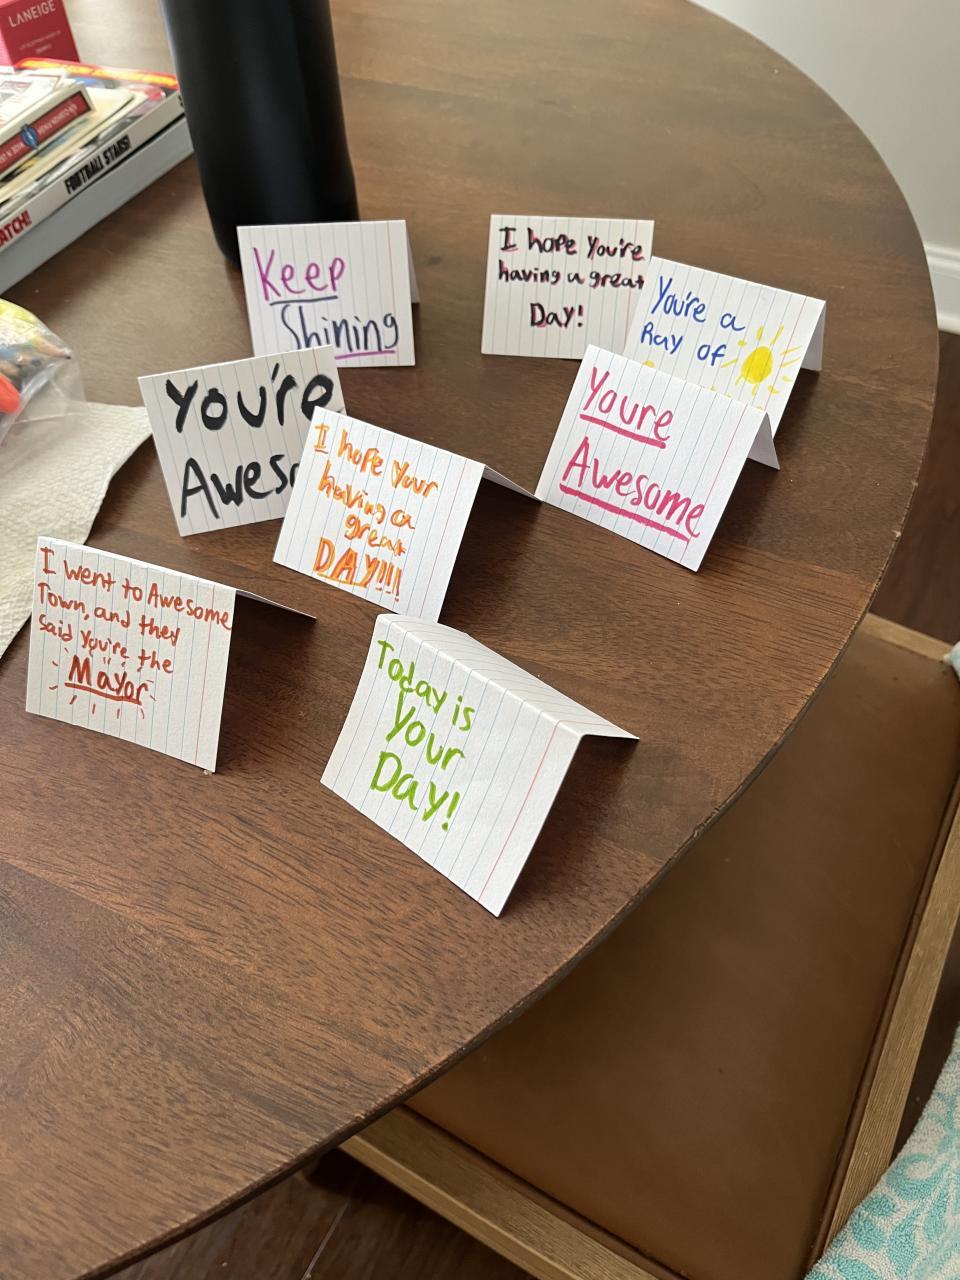 LANEIGE
FOOTBALL STARS!
ATCH!
Keep
Shining
I hope You're
having a great
Day!
You're a
Ray of
You're
Awes
Youre
Awesome
I hope Your
having a
great
DAY!!!
I went to Awesome
Town, and they
said you're the
Mayor
Today is
Your
Day!